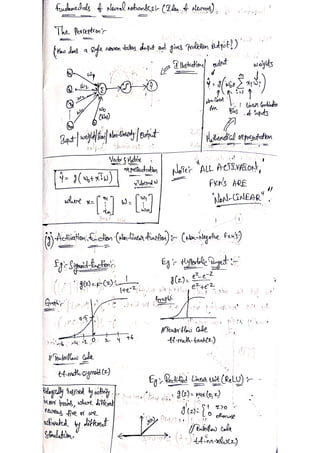 Fundamentals of Neural networks:- (Idea of Neurons)
The Perceptron:-
(How does a single neuron takes input and gives prediction output!!)
Illustration
output
weights
ŷ = g(w₀ + Σ xᵢ wᵢ)
Non-linear fxn
Bias
Linear Combination of inputs
Mathematical representation
Input / weights / sum / Non-linearity / output
Vector & Matrix representation
ŷ = g(w₀ + xᵀw)
where x = [x₁ ⋮ xₘ] w = [w₁ ⋮ wₘ]
Note:- "ALL ACTIVATION
FXN'S ARE
"NON-LINEAR"
(g) → Activation Function (Non-linear function) :- (Non-Negative Fxn's)
Eg:- Sigmoid function:-
g(z) = σ(z) = 1 / 1+e⁻ᶻ
Graph:-
0.5
-6 -4 -2 0 2 4 +6
// Tensorflow Code
tf.math.sigmoid(z)
Eg:- Hyperbolic Tangent:-
g(z) = eᶻ - e⁻ᶻ / eᶻ + e⁻ᶻ
Graph:-
// Tensorflow Code
tf.math.tanh(z)
Biologically Inspired by activity
in our brains, where different
neurons fire or are
activated by different
Stimulation.
Eg:- Rectified Linear unit (ReLU) :-
g(z) = max(0, z)
g'(z) = { 1 z>0
0 otherwise
// Tensorflow Code
tf.nn.relu(z)